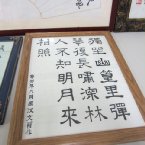 獨坐幽篁里彈
琴復長嘯深林
人不知明月來
相照